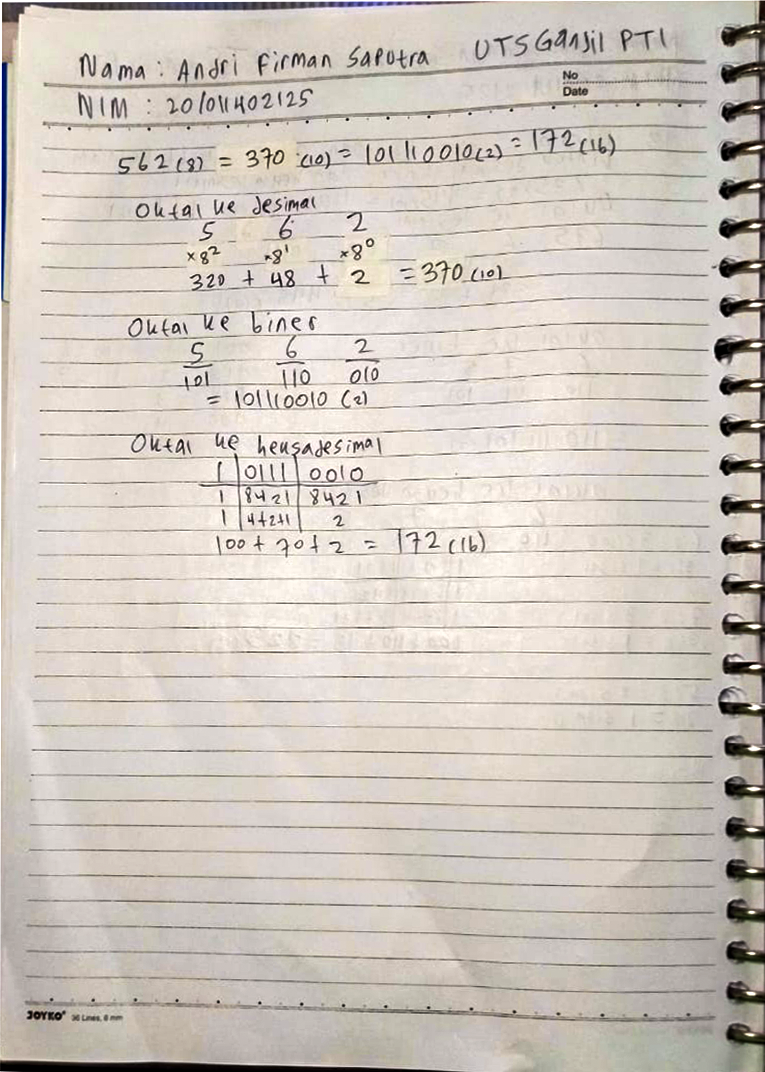 Nama : Andri Firman Saputra UTS Ganjil PTI
No
NIM : 20/011402125
Date
562 (8) = 370 (10) = 101110010 (2) = 172 (16)
Oktal ke desimal
5 6 2
×8² ×8¹ ×8⁰
320 + 48 + 2 = 370 (10)
Oktal ke biner
5 6 2
101 110 010
= 101110010 (2)
Oktal ke heksadesimal
1 | 0111 | 0010
1 | 8421 | 8421
1 | 4+2+1 | 2
100 + 70 + 2 = 172 (16)
JOYKO 36 Lines, 8 mm